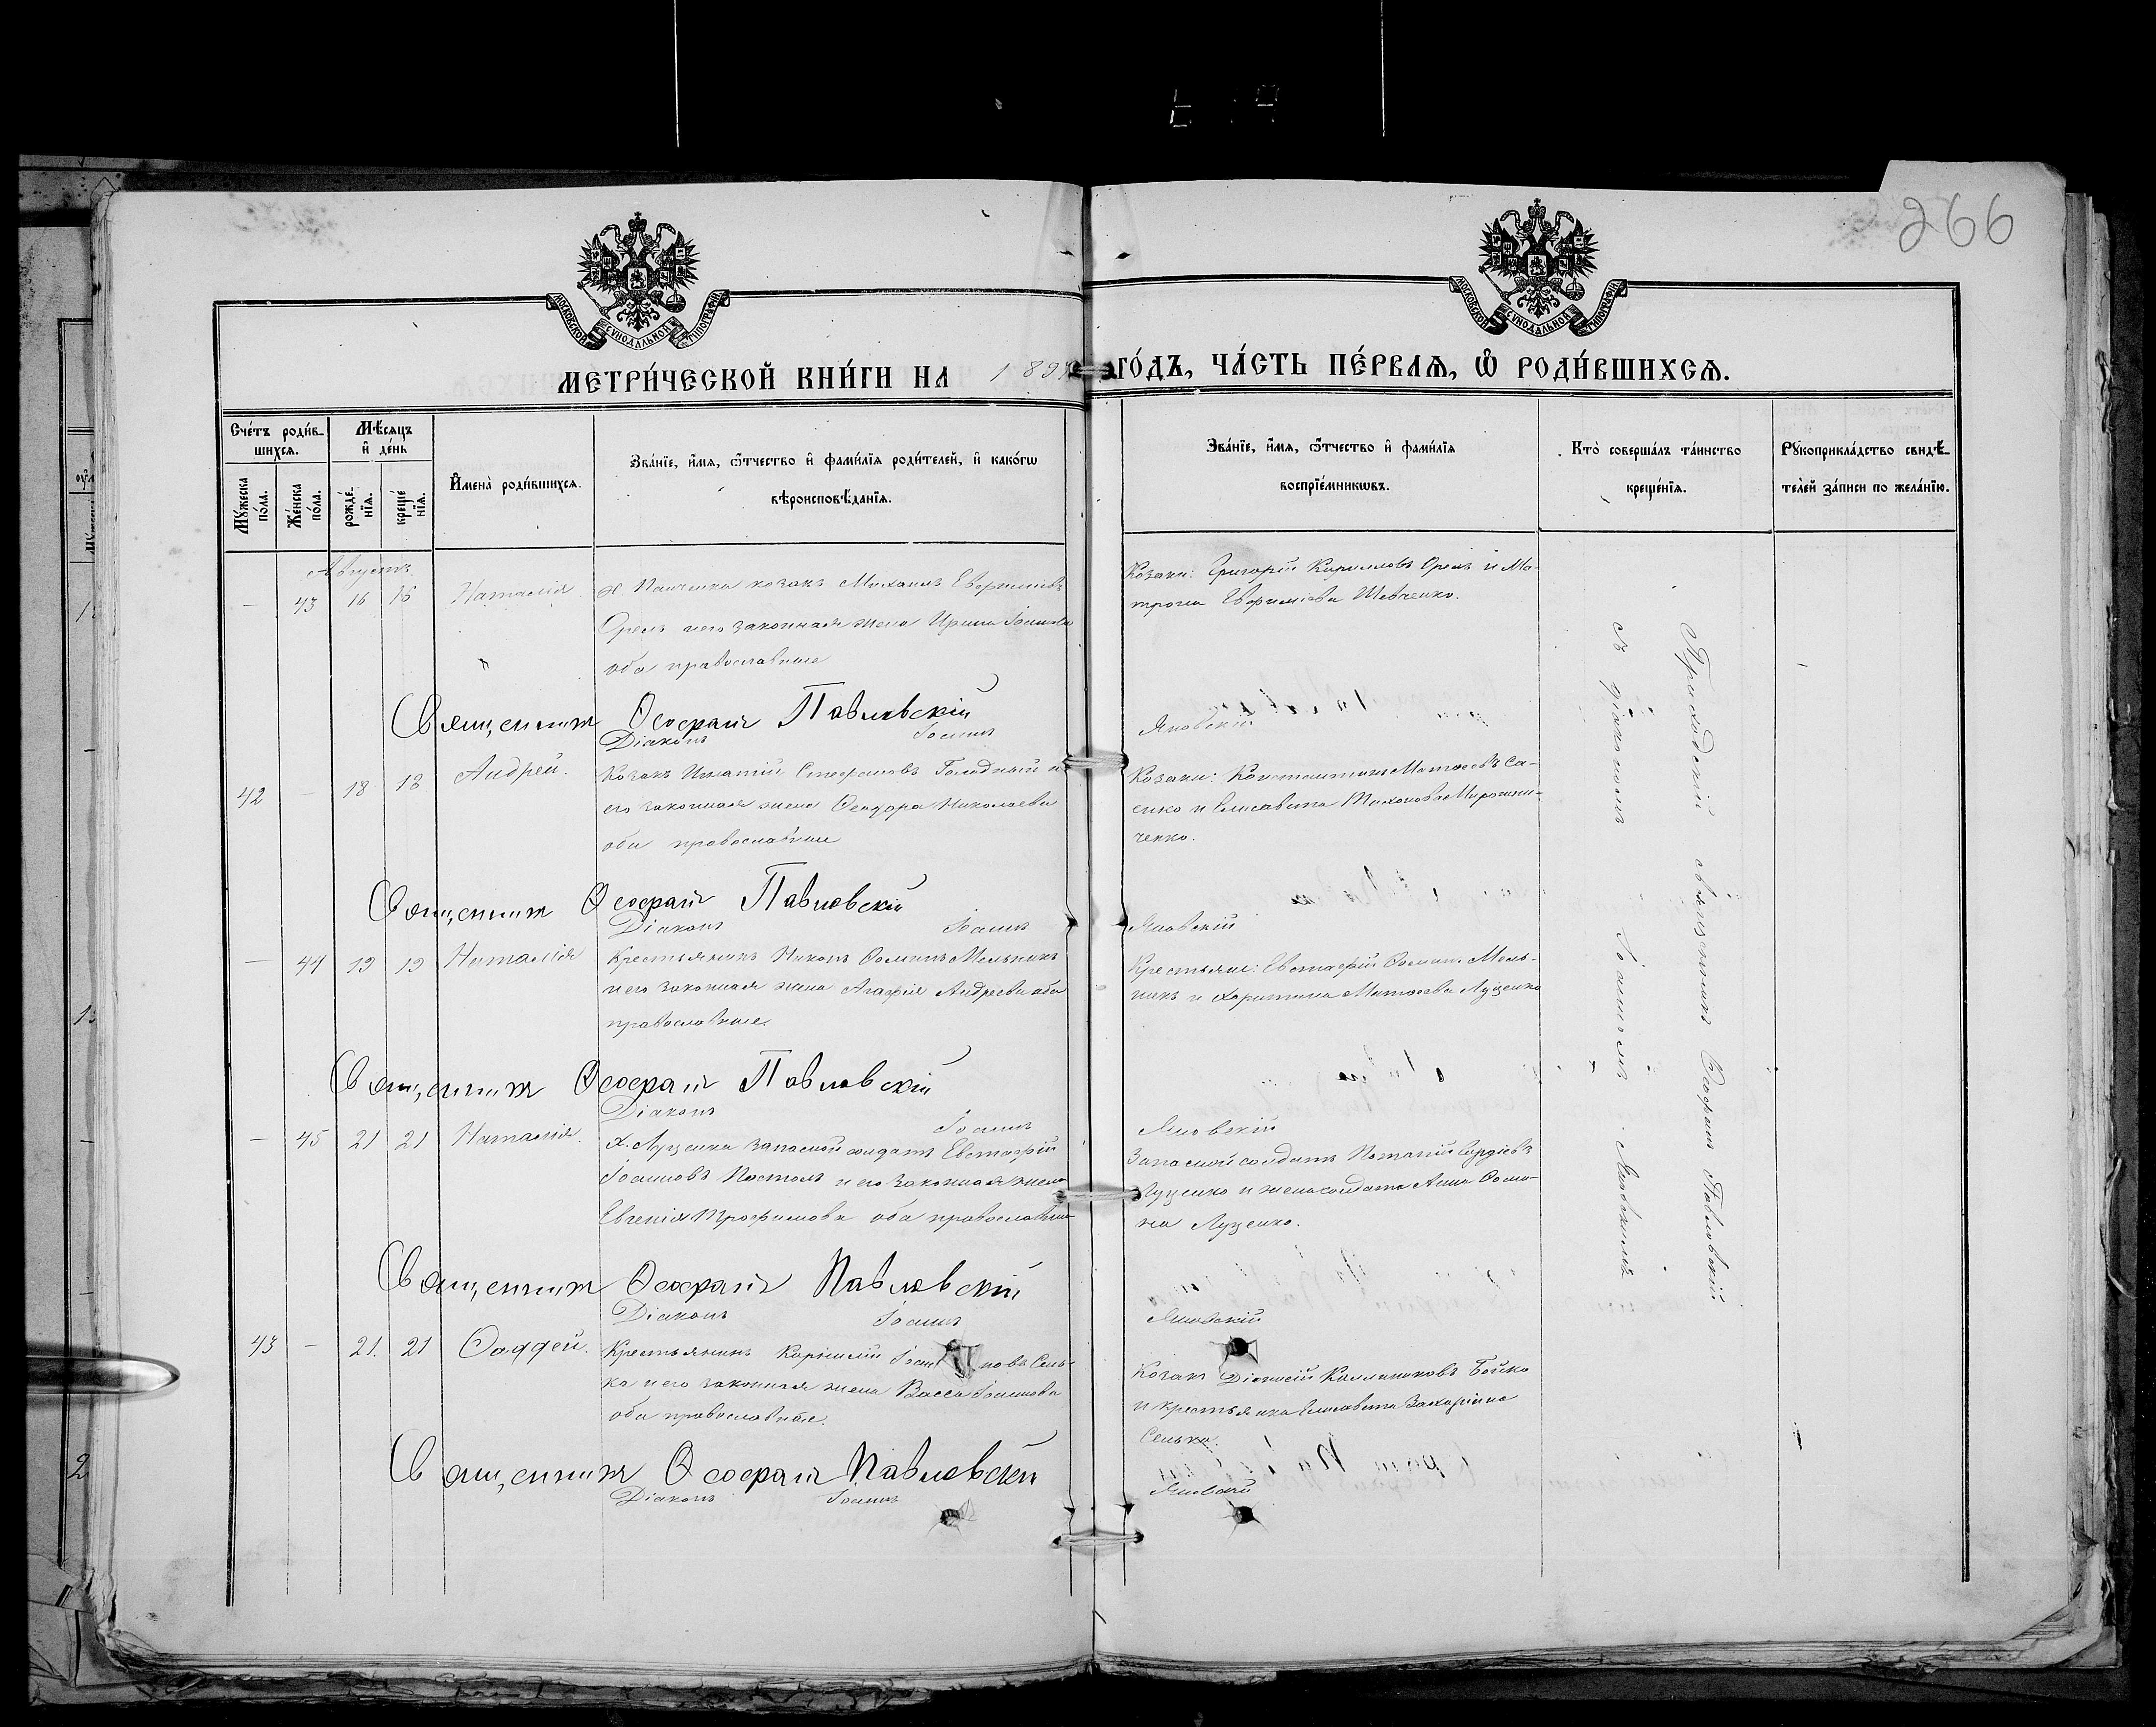 266
МОСКОВСКОЙ СѴНОДАЛЬНОЙ ТИПОГРАФІИ
МОСКОВСКОЙ СѴНОДАЛЬНОЙ ТИПОГРАФІИ
МЕТРИ́ЧЕСКОЙ КНИ́ГИ НА 189
ГО́ДЪ, ЧА́СТЬ ПЕ́РВАѦ, Ѿ РОДИ́ВШИХСѦ.
Сче́тъ роди́в-
шихсѧ.
Мꙋ́жеска по́ла.
Же́нска по́ла.
Мѣ́сѧцъ и҆ де́нь
рожде́-нїѧ.
креще́нїѧ.
И҆мена̀ роди́вшихсѧ.
Зва́нїе, и҆́мѧ, ѻ҆́тчество и҆ фами́лїѧ роди́телей, и҆ како́гѡ
вѣроисповѣ́данїѧ.
Зва́нїе, и҆́мѧ, ѻ҆́тчество и҆ фами́лїѧ
воспрїе́мникѡвъ.
Кто̀ соверша́лъ та́инство
креще́нїѧ.
Рꙋкоприкла́дство свидѣ́-
телей за́писи по жела́нїю.
Августъ
— 43 16 16 Наталія
х Панченка козакъ Михаилъ Евфиміевъ
Орелъ и его законная жена Ирина Іоаннова
оба православные
Козаки: Григорій Кирилловъ Орелъ и Ма-
трона Евфиміева Шевченко.
Священникъ Ѳеофанъ Павловскій
Діаконъ Іоаннъ Яновскій
42 — 18 18 Андрей.
Козакъ Игнатій Стефановъ Голодный и
его законная жена Ѳеодора Николаева
оба православные
Козаки: Константинъ Матѳеевъ Са-
енко и Елисавета Тихонова Мирошни-
ченко.
Священникъ Ѳеофанъ Павловскій
Діаконъ Іоаннъ Яновскій
— 44 19 19 Наталія
Крестьянинъ Никонъ Ѳоминъ Мельникъ
и его законная жена Агафія Андреева оба
православные.
Крестьяне: Евстафій Ѳоминъ Мель-
никъ и Харитина Матѳеева Луценко
Священникъ Ѳеофанъ Павловскій
Діаконъ Іоаннъ Яновскій
— 45 21 21 Наталія.
х. Луценка запасной солдатъ Евстафій
Іоанновъ Постолъ и его законная жена
Евгенія Трофимова оба православные
Запасной солдатъ Потапій
Луценко и жена солдата Анна Ѳоми-
на Луценко.
Священникъ Ѳеофанъ Павловскій
Діаконъ Іоаннъ Яновскій
43 — 21. 21 Ѳаддей.
Крестьянинъ Корнилій Іоанновъ Сень-
ка и его законная жена Васса Іоаннова
оба православные.
Козакъ Діонисій Каллиниковъ Бойко
и крестьянка Елисавета Захаріина
Сенька.
Священникъ Ѳеофанъ Павловскій
Діаконъ Іоаннъ Яновскій
Приходскій священникъ Ѳеофанъ Павловскій
съ діакономъ Іоанномъ Яновскимъ